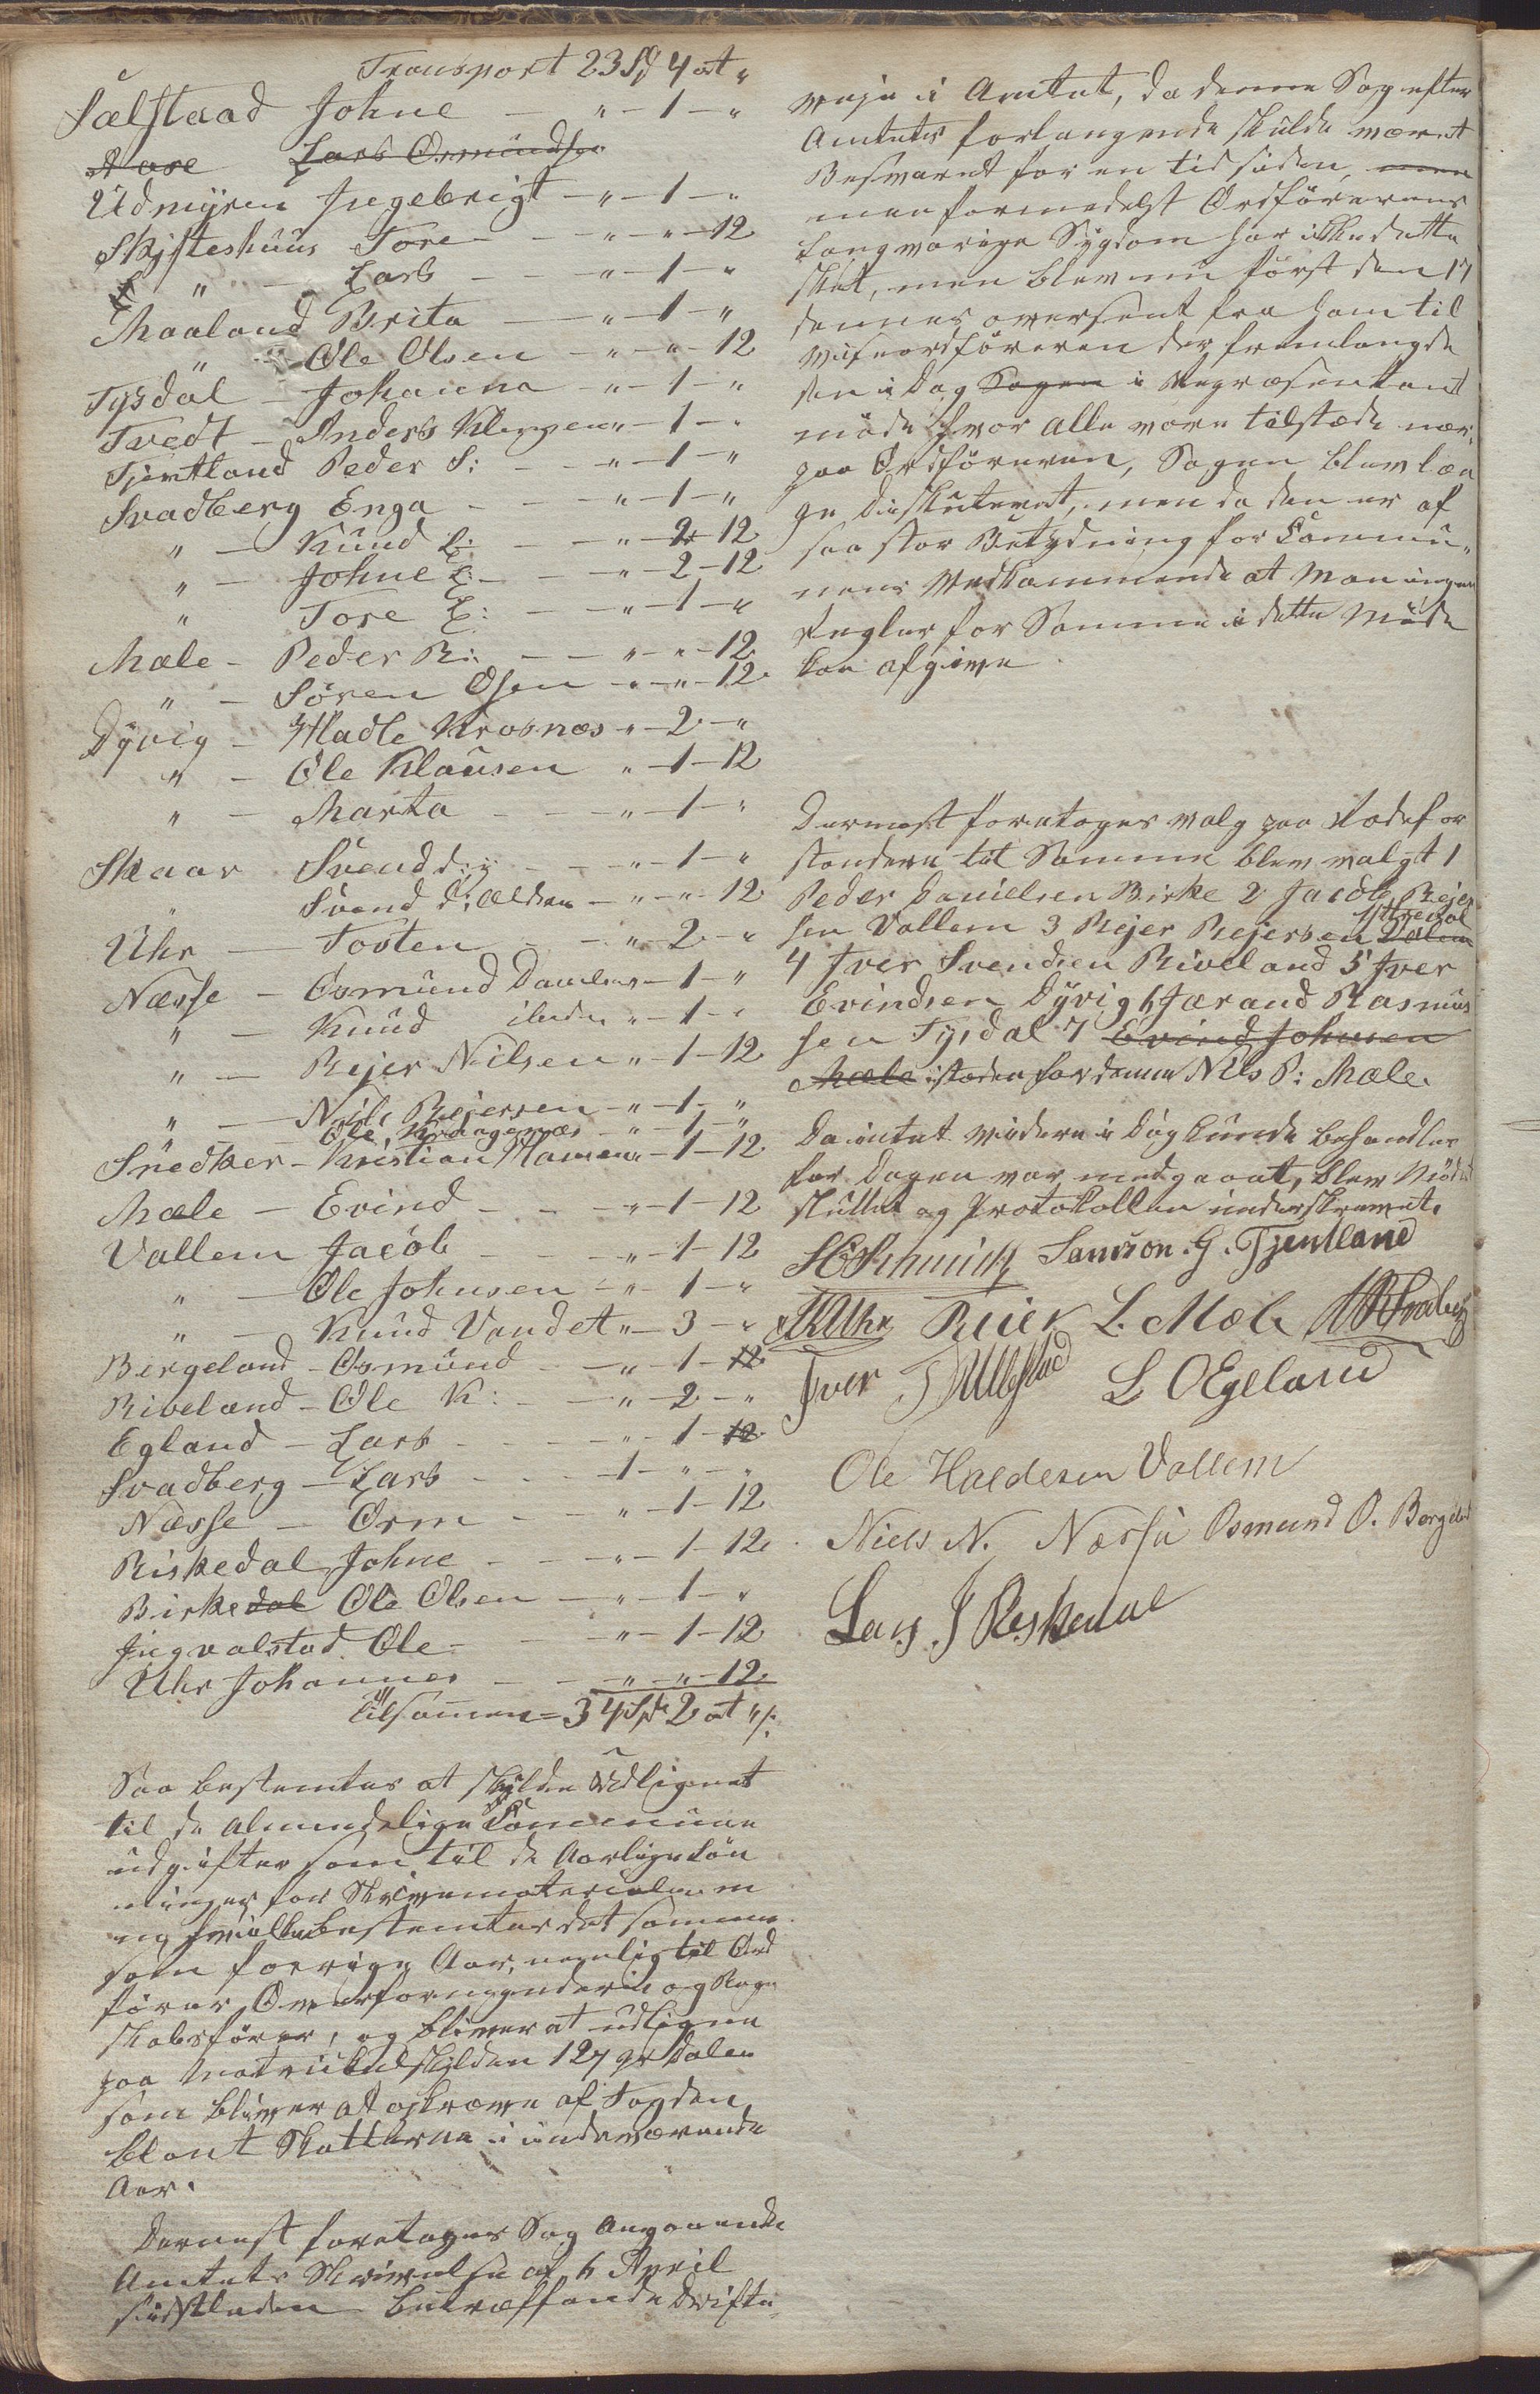 Transport 23 Spd 4 ort "
Sælstaad Johne - " - 1 - "
Aase Lars Osmundsen
Udmyren Ingebrigt - " - 1 - "
Skifteshuus Tore - " - " - 12
" - Lars - " - 1 - "
Maaland Brita - " - 1 - "
" - Ole Olsen - " - " - 12
Tysdal - Johanna - " - 1 - "
Tvedt - Anders Klungen " - 1 - "
Tjentland Peder S: - " - 1 - "
Svadberg Enga - " - 1 - "
" - Knud L: - " - 2 - 12
" - Johne L: - " - 2 - 12
" Tore L: - " - 1 - "
Mæle - Peder R: - " - " - 12
" - Sören Olsen - " - " - 12
Dyvig - Hadle Krosnæs " - 2 - "
" - Ole Klausen " - 1 - 12
" - Marta - " - 1 - "
Skaar Svend d: y - " - 1 - "
Svend d: Ældre - " - " - 12
Uhr - Tosten - " - 2 - "
Næsse - Osmund Danielsen - 1 - "
" - Knud - " - 1 - "
" - Rejer Nilsen - " - 1 - 12
" - Nils Rejersen - " - 1 - "
Ole - " - 1 - "
Snedker - Kristian Hansen - 1 - 12
Mæle - Evind - " - 1 - 12
Vallem Jacob - " - 1 - 12
" - Ole Johnsen - " - 1 - "
" - Knud Vandet " - 3 - "
Bergeland - Osmund - " - 1 - 12
Riveland - Ole K: - " - 2 - "
Egland - Lars - " - 1 - 12
Svadberg - Lars - 1 - " - "
Næsse - Orm - " - 1 - 12
Riskedal Johne - " - 1 - 12
Birkedal Ole Olsen - " - 1 - "
Ingvalstad Ole - " - 1 - 12
Uhr Johannes - " - " - 12
Tilsammen = 34 Spd 2 ort " s.
Saa bestemtes at skulde Udlignet
til de almindelige Commune
udgifter som til de Aarlige Løn
ninger for Skrivematerialier m
m hvilke bestemtes det samme
som forrige Aar, nemlig til Ord
fører, Overformynderie og Regn
skabsfører, og bliver at udligne
paa Matrikulskylden 127 pr Daler
som bliver at opkræve af Fogden
blant Skatterne i indeværende
Aar.
Dernest foretoges Sag Angaaende
Amtets Skrivelse af 6 April
sidstleden betræffende Drifte
veje i Amtet, da denne Sag efter
Amtets forlangende skulde været
Besvaret for en tid siden, men
men formedelst Ordførerens
langvarige Sygdom har ikke dette
skeet, men blev nu først den 17
dennes oversent fra ham til
Viseordføreren der fremlangde
den i Dag Sagen i Repræsentant
møde hvor alle vare tilstæde nær
paa Ordføreren, Sagen blev læn
ge Diskuteret, men da den er af
saa stor Betydning for Commu-
nens Vedkommende at Man ingen
Regler for Samme i dette Møde
kan afgive.
Dernest foretoges valg paa Rodefor
standere til Samme blev valgt 1
Peder Danielsen Birke 2 Jacob Rejer
sen Vallem 3 Rejer Rejersen Valem Yttredal
4 Iver Svendsen Riveland 5 Iver
Evindsen Dyvig 6 Færand Rasmus
sen Tysdal 7 Evind Johnsen
Mæle istæden for denne Nils P: Mæle.
Da intet videre i Dag kunde behandles
for Dagen var medgaaet, blev Mödet
sluttet og Protokollen underskrevet.
Samson. G. Tjentland
TTUhr Reier L. Mæle
Iver TUlbstad L OEgeland
Ole Haldesen Vallem
Niels N. Næsse Osmund O. Bergeland
Lars J Reskedal